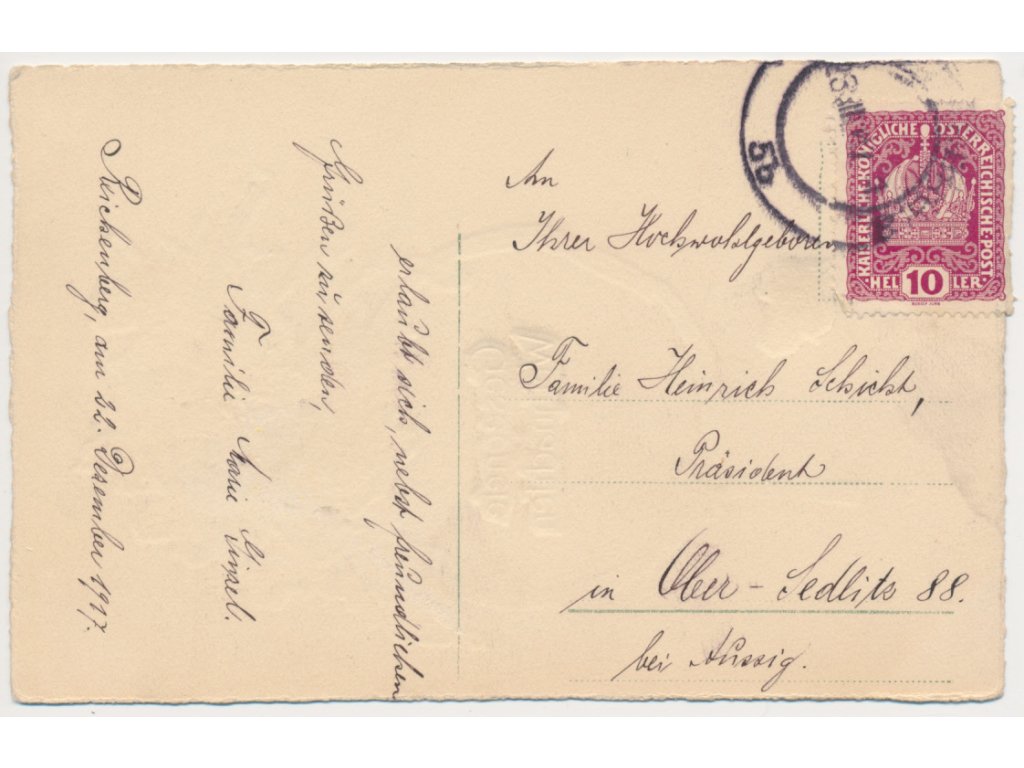 An
Ihrer Hochwohlgeboren
Familie Heinrich Schicht,
Präsident
in Ober-Sedlitz 88.
bei Aussig.
erlaubt sich, nebst freundlichen
Grüßen zu senden,
Familie Marie Gimpel.
Reichenberg, am 22. Dezember 1917.
KAISERLICHE KÖNIGLICHE ÖSTERREICHISCHE POST
HELLER
10
5b